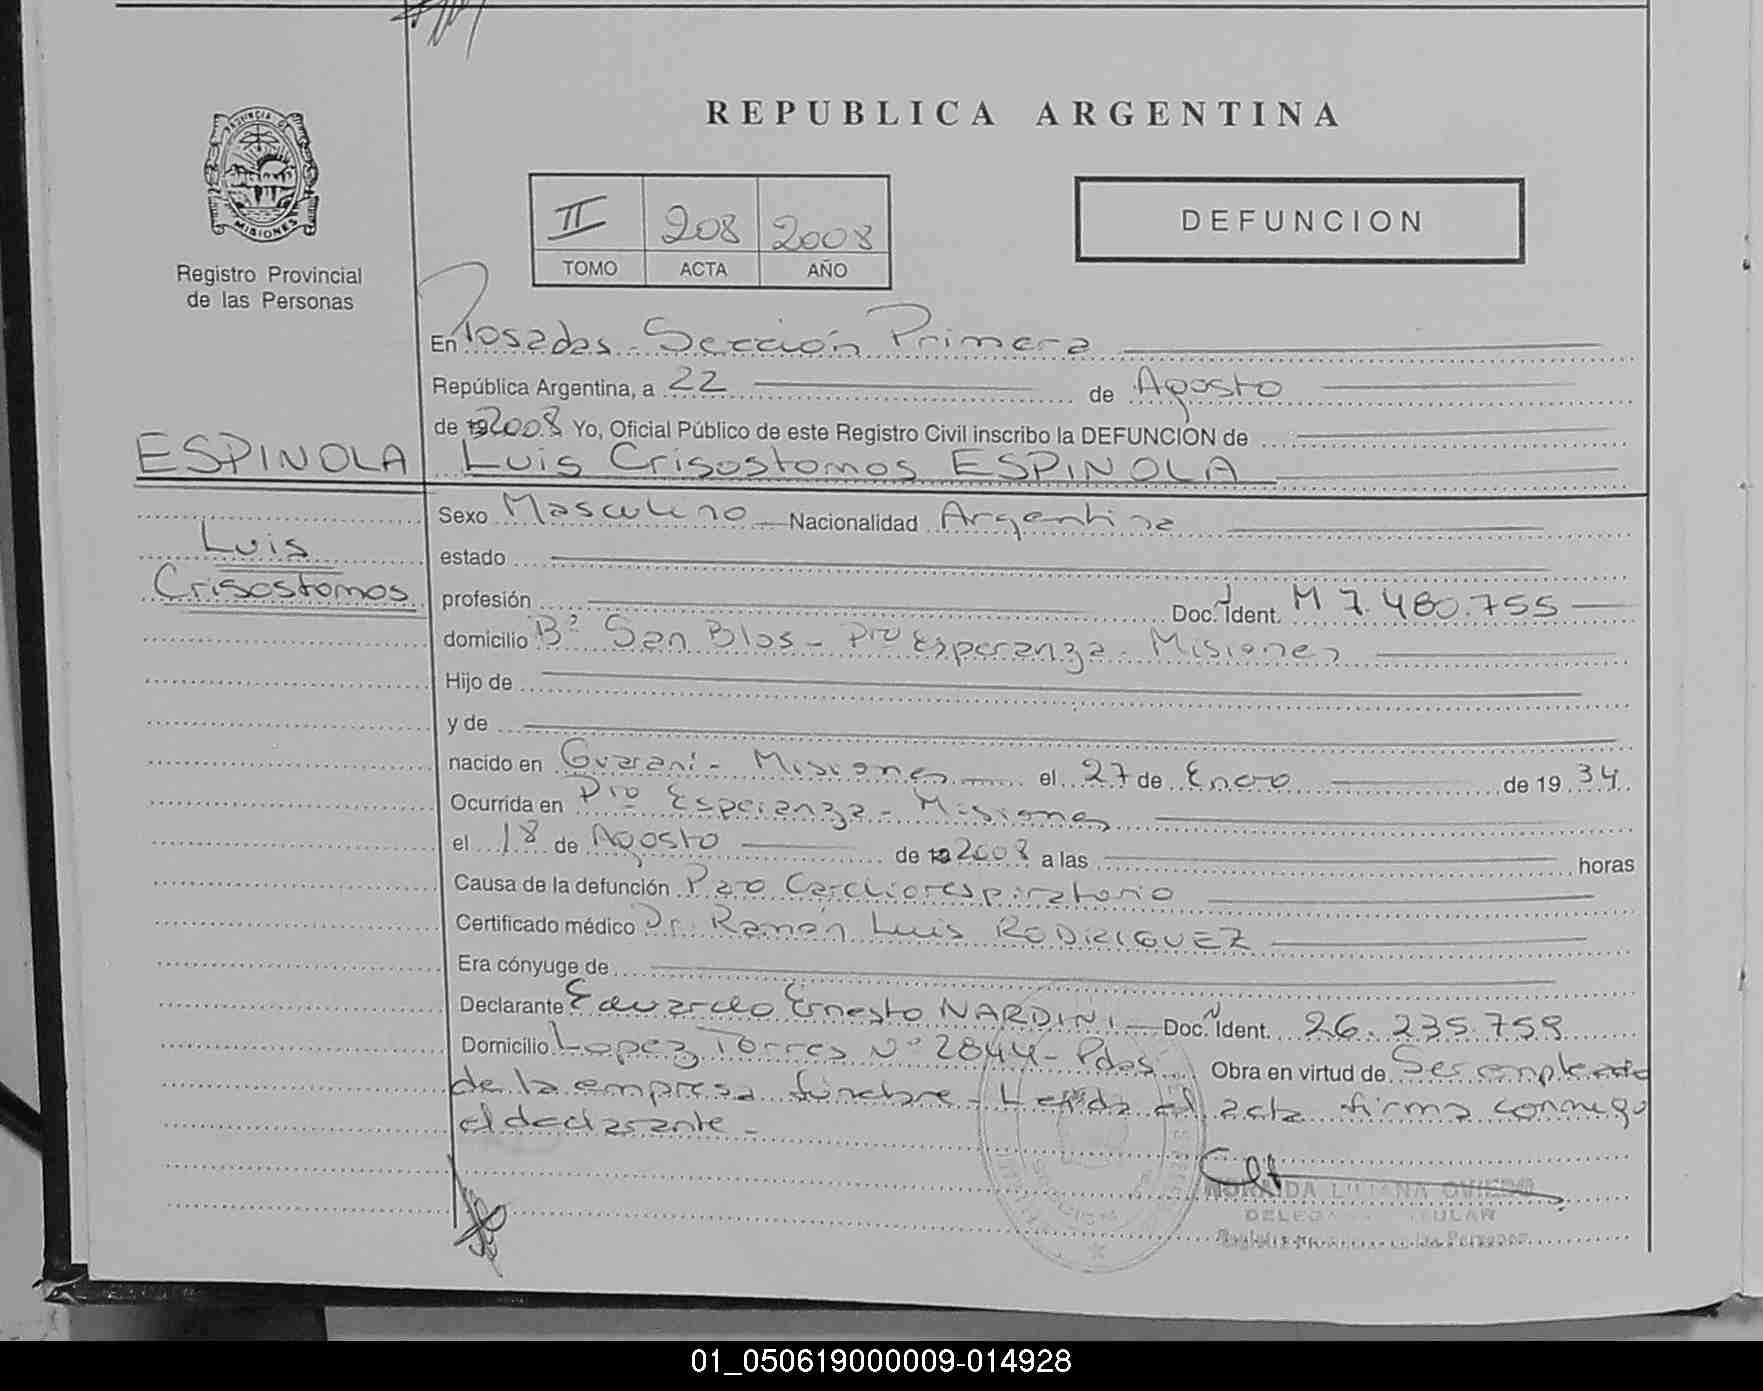 REPUBLICA ARGENTINA
PROVINCIA DE
MISIONES
Registro Provincial
de las Personas
II 208 2008
TOMO ACTA AÑO
DEFUNCION
En Posadas - Sección Primera
República Argentina, a 22 de Agosto
de 19 2008 Yo, Oficial Público de este Registro Civil inscribo la DEFUNCION de
ESPINOLA
Luis Crisostomos ESPINOLA
Luis
Crisostomos
Sexo Masculino Nacionalidad Argentina
estado
profesión Doc. Ident. M 7.480.755
domicilio Bº San Blas - Pto Esperanza - Misiones
Hijo de
y de
nacido en Guarani - Misiones el 27 de Enero de 19 34
Ocurrida en Pto Esperanza - Misiones
el 18 de Agosto de 19 2008 a las horas
Causa de la defunción Paro Cardiorespiratorio
Certificado médico Dr. Ramón Luis RODRIGUEZ
Era cónyuge de
Declarante Eduardo Ernesto NARDINI Doc. Ident. 26.235.759
Domicilio Lopez Torres Nº 2844 - Pdas Obra en virtud de Ser empleado
de la empresa fúnebre - Leída el acta firma conmigo
el declarante -
LILIANA OVIEDO
TITULAR
01_050619000009-014928